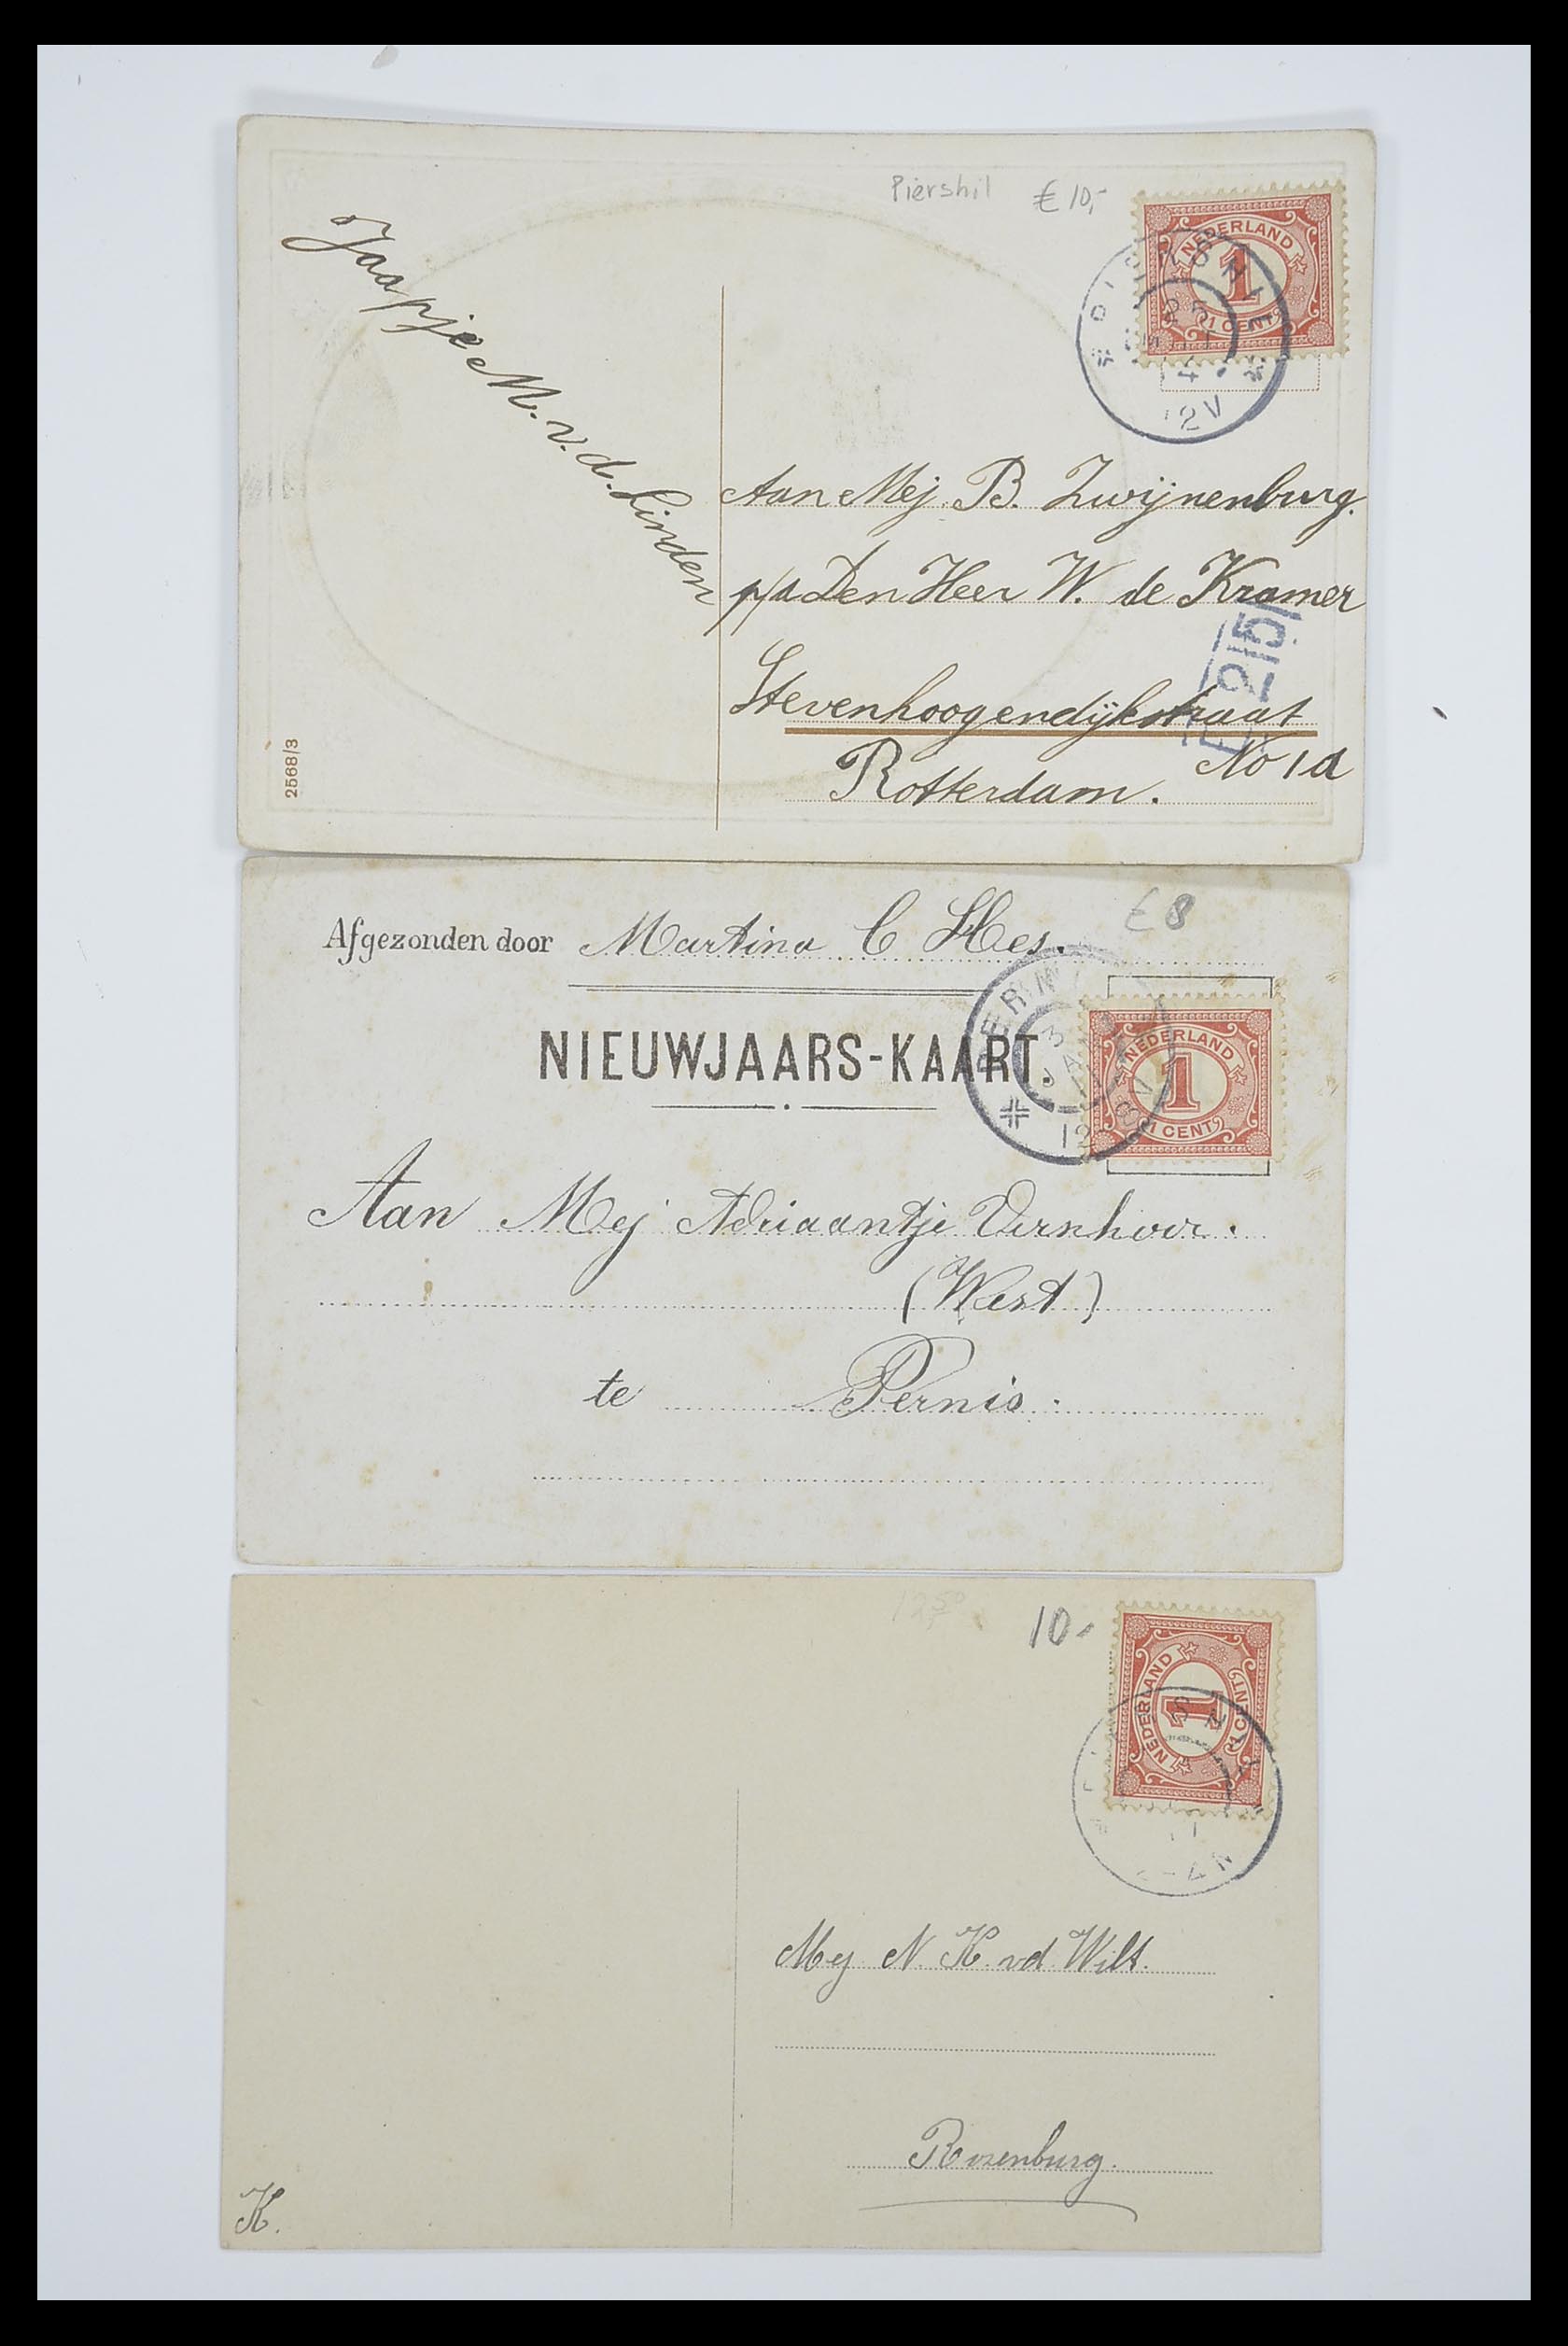 Piershil € 10,-
NEDERLAND
1
1 CENT
12V
Jaapje M. v. d. Linden
Aan Mej. B. Zwijnenburg.
p/a Den Heer W. de Kramer
Stevenhoogendijkstraat
No 1a
Rotterdam.
215
2568/3
€ 8
Afgezonden door Martina C Hes.
NIEUWJAARS-KAART.
NEDERLAND
1
1 CENT
3
JA
12
8V
Aan Mej Adriaantje Vernhoor.
(West)
te Pernis.
12,50
10-
NEDERLAND
1
1 CENT
Mej N. K. vd Wilt.
Rozenburg.
K.